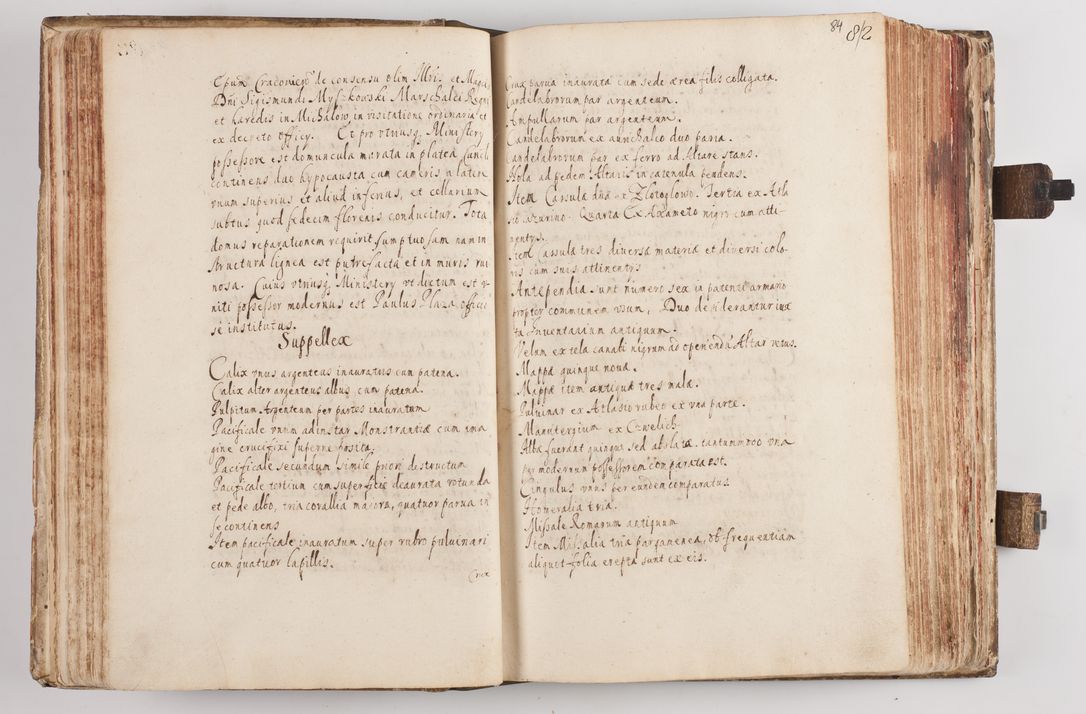 Epum Cracovien de consensu olim Illris et Magci
Dni Sigismundi Myszkowski Marschalci Regni
et hæredis in Michalow in visitatione ordinaria et
ex decreto officij. Et pro vtriusq Ministerij
possessore est domuncula murata in platea
continens duo hypocausta cum cameris in latere
vnum superius et aliud inferius, et cellarium
subtus quod sedecim florenis conducitur. Tota
domus reparationem requirit sumptuosam nam in
structura lignea est putrefacta et in muris rui
nosa. Cuius vtriusq Ministerij vt dictum est v
niti possessor modernus est Paulus Plaza officio
se institutus.
Suppellex
Calix vnus argenteus inauratus cum patena.
Calix alter argenteus albus cum patena.
Pulpitum Argenteum per partes inauratum
Pacificale vnum ad instar Monstrantiæ cum ima
gine crucifixi superne posita.
Pacificale secundum simile priori destructum
Pacificale tertium cum superficie deaurata rotunda
et pede albo, tria corallia maiora, quatuor parua in
se continens
Item pacificale inauratum super rubro puluinari
cum quatuor lapillis.
Crux
84 812
Crux parua inaurata cum sede ærea filis colligata.
Candelabrorum par argenteum.
Ampullarum par argenteum.
Candelabrorum ex aurichalco duo paria.
Candelabrorum par ex ferro ad Altare stans.
Nola ad pedem Altaris in catenula pendens.
Item Casula ex Zlotoglowo. Tertia ex Atla
si cazurino. Quarta Ex Axameto nigro cum atti
nentijs.
Item Cassula tres diuersæ materiæ et diuersi colo
ris cum suis attinentijs
Antependia sunt numero sex in patenti armario
propter communem vsum, Duo desiderantur iux
ta Inuentarium antiquum.
Velum ex tela canabi nigrum ad operiendum Altar vetus.
Mappæ quinque noua.
Mappæ item antiquæ tres mala.
Puluinar ex Atlasio rubeo ex vna parte.
Manutergium ex Czwelich
Alba fuerant quinque sed ablatæ tantummodo vna
per modernum possessorem comparata est.
Cingulus vnus per eundem comparatus
Homeralia tria.
Missale Romanum antiquum
Item Missalia tria pargamenea, ob frequentiam
aliquot folia erepta sunt ex eis.